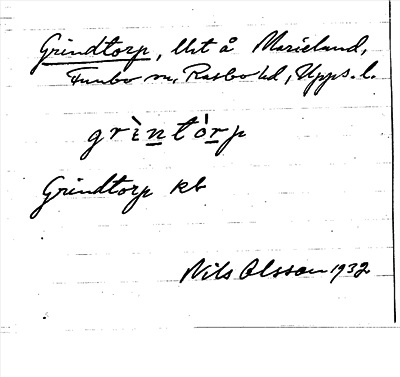 Grindtorp, lht å Marieland,
Funbo sn, Rasbo hd, Upps. l.
grı̀ntórp
Grindtorp kb
Nils Olsson 1932